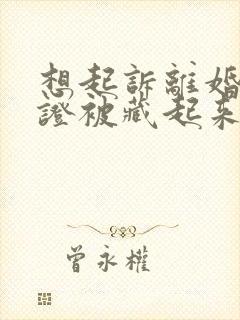 想起訴離婚
證被藏起來
曾永權